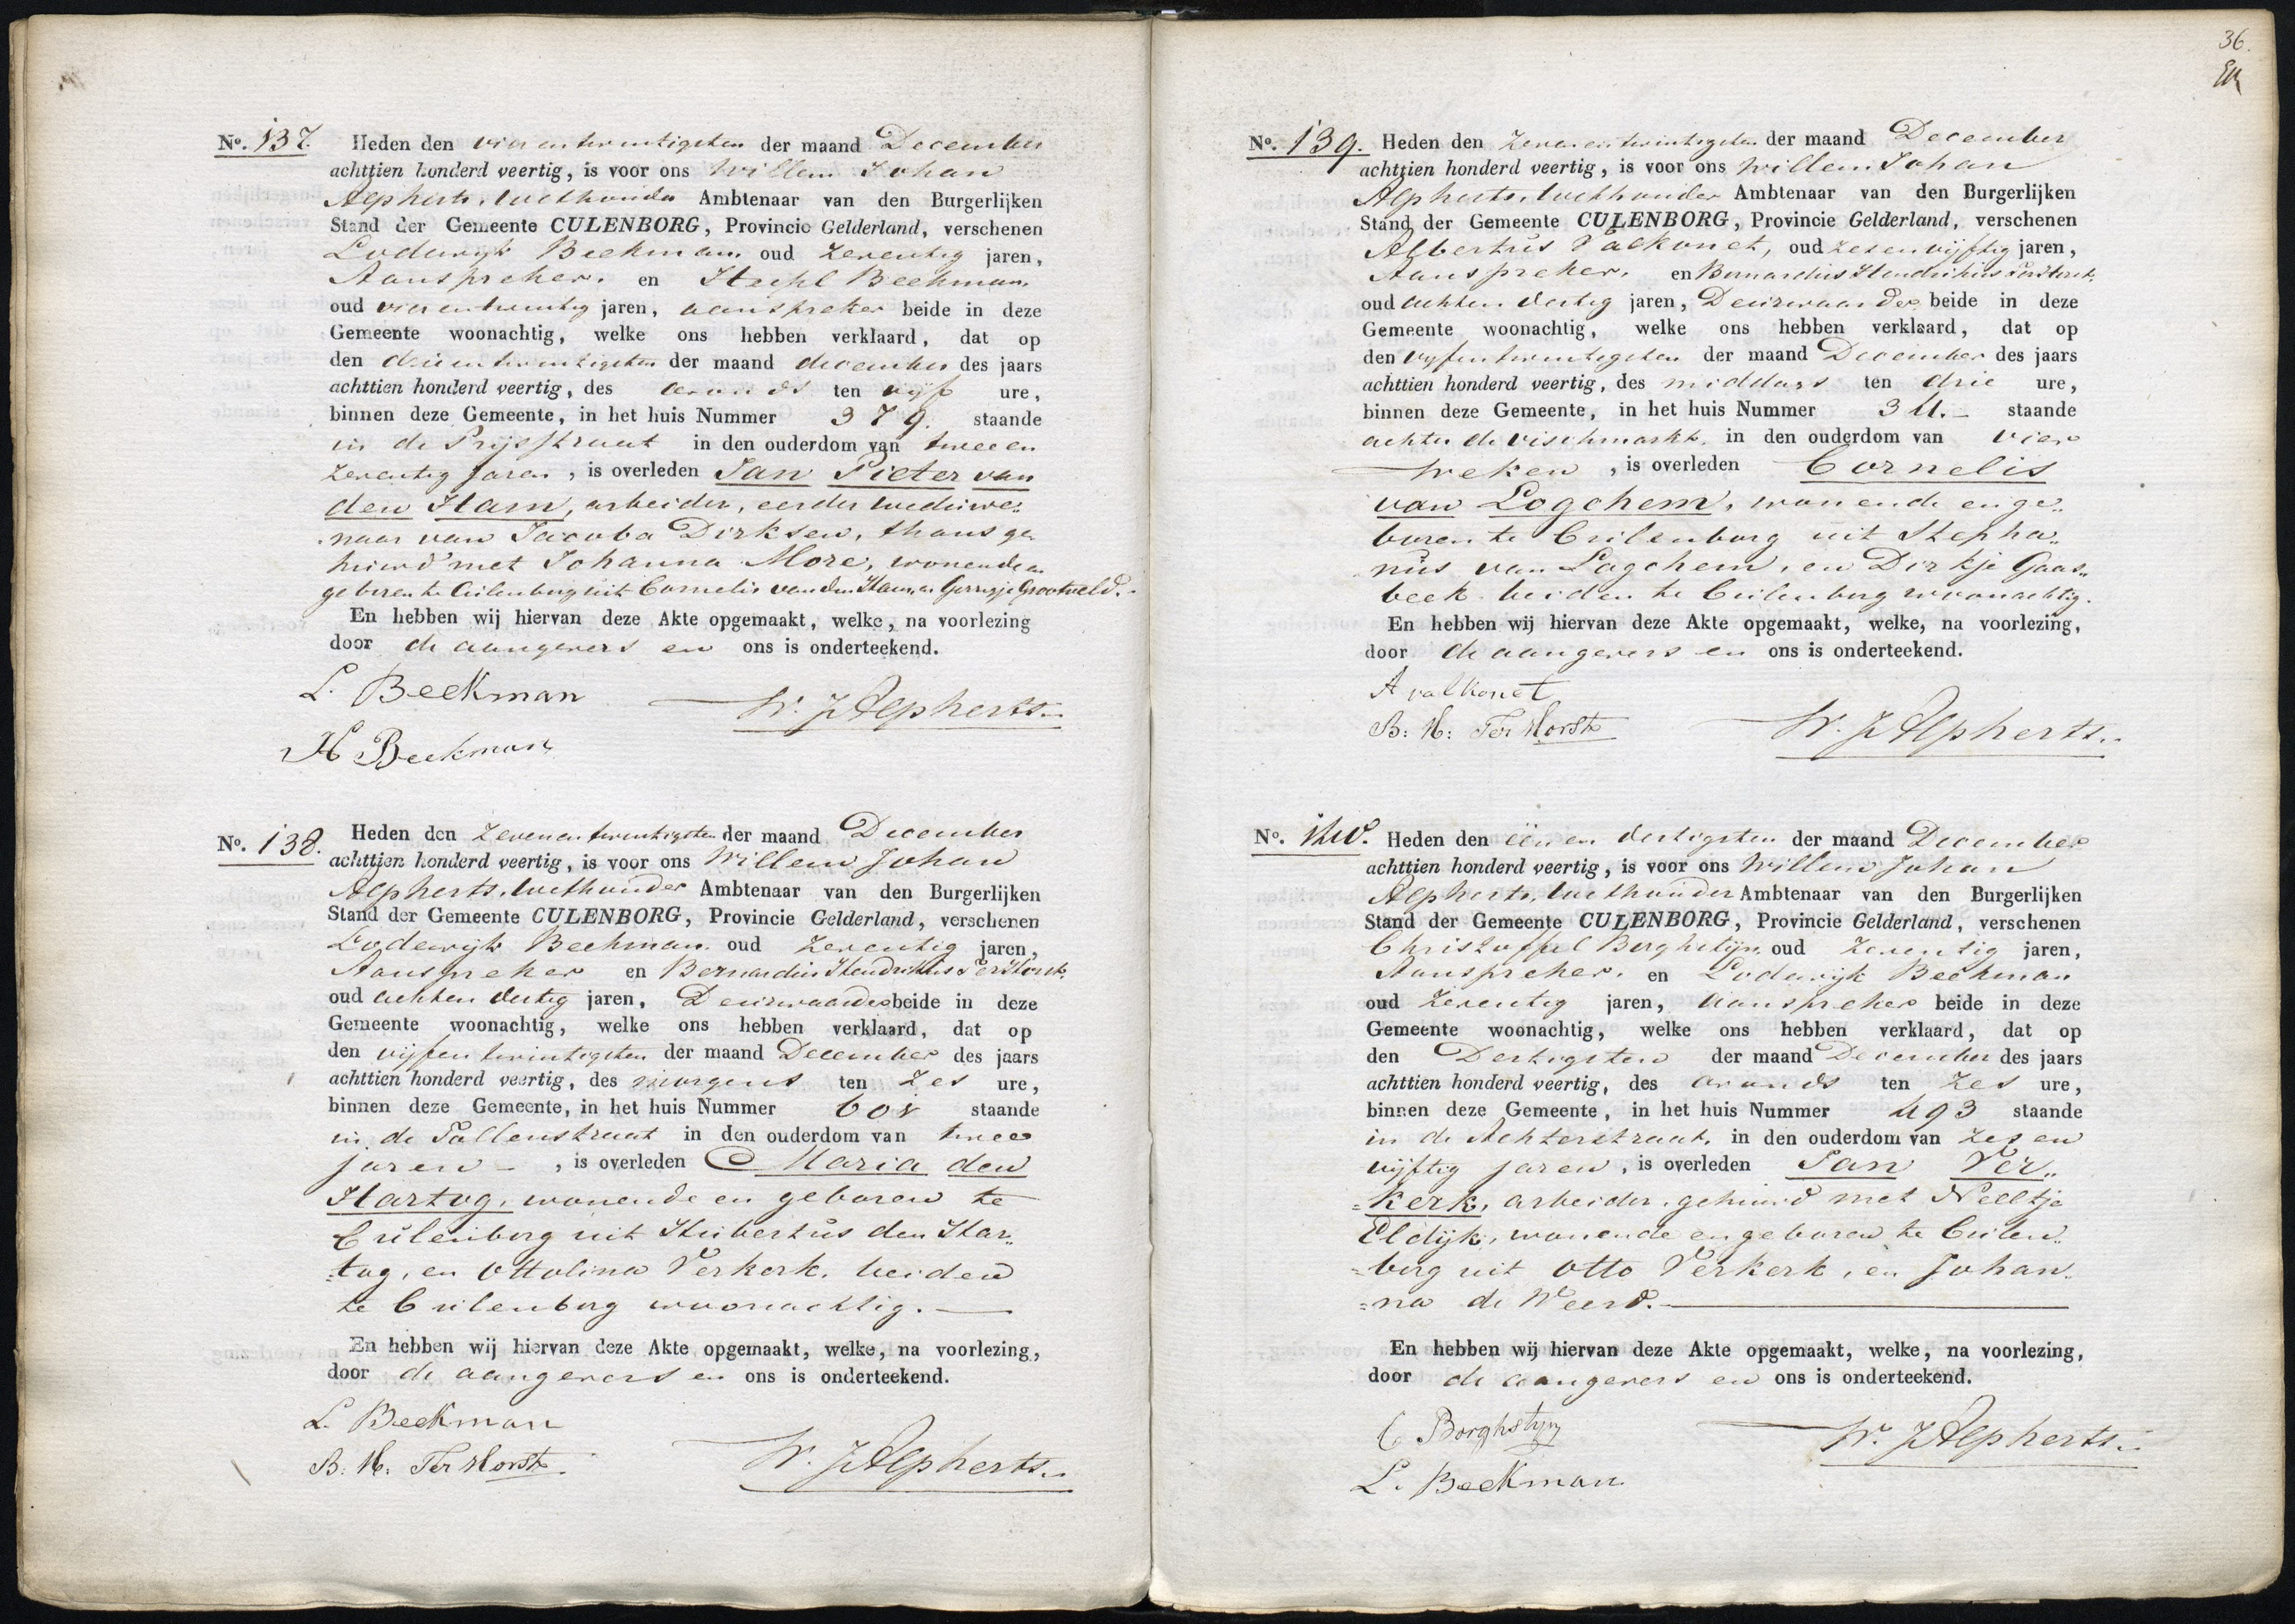 No. 137. Heden den vier en twintigsten der maand December
achttien honderd veertig, is voor ons Willem Johan
Alpherts, Wethouder Ambtenaar van den Burgerlijken
Stand der Gemeente CULENBORG, Provincie Gelderland, verschenen
Lodewijk Beekman oud zeventig jaren,
Aanspreker. en Beekman
oud vier en twintig jaren, aanspreker beide in deze
Gemeente woonachtig, welke ons hebben verklaard, dat op
den drie en twintigsten der maand december des jaars
achttien honderd veertig, des avonds ten vijf ure,
binnen deze Gemeente, in het huis Nummer 379. staande
in de Prijsstraat in den ouderdom van twee en
zeventig jaren, is overleden Jan Pieter van
den Ham, arbeider, eerder weduwe„
naar van Jacoba Dirksen, thans ge
huwd met Johanna More, wonende en
geboren te Cuilenburg uit Cornelis van den Ham en Gerrigje Grootveld.
En hebben wij hiervan deze Akte opgemaakt, welke, na voorlezing
door de aangevers en ons is onderteekend.
L. Beekman
W. J. Alpherts
H Beekman
No. 138. Heden den zeven en twintigsten der maand December
achttien honderd veertig, is voor ons Willem Johan
Alpherts, Wethouder Ambtenaar van den Burgerlijken
Stand der Gemeente CULENBORG, Provincie Gelderland, verschenen
Lodewijk Beekman oud zeventig jaren,
Aanspreker en Bernardus Hendrikus Ter Horst,
oud acht en dertig jaren, Deurwaarder beide in deze
Gemeente woonachtig, welke ons hebben verklaard, dat op
den vijf en twintigsten der maand December des jaars
achttien honderd veertig, des morgens ten zes ure,
binnen deze Gemeente, in het huis Nummer staande
in de Tollenstraat in den ouderdom van twee
jaren, is overleden Maria den
Hartog, wonende en geboren te
Culenburg uit Hubertus den Har„
tog, en Ottolina Verkerk, beiden
te Cuilenburg woonachtig.
En hebben wij hiervan deze Akte opgemaakt, welke, na voorlezing,
door de aangevers en ons is onderteekend.
L. Beekman
B: H: Ter Horst
W. J. Alpherts
36.
No. 139. Heden den zeven en twintigsten der maand December
achttien honderd veertig, is voor ons Willem Johan
Alpherts, Wethouder Ambtenaar van den Burgerlijken
Stand der Gemeente CULENBORG, Provincie Gelderland, verschenen
Albertus Valkonet, oud zes en vijftig jaren,
Aanspreker, en Bernardus Hendrikus Ter Horst,
oud acht en dertig jaren, Deurwaarder beide in deze
Gemeente woonachtig, welke ons hebben verklaard, dat op
den vijf en twintigsten der maand December des jaars
achttien honderd veertig, des middags ten drie ure,
binnen deze Gemeente, in het huis Nummer 34. staande
achter de vischmarkt, in den ouderdom van vier
weken, is overleden Cornelis
van Logchem, wonende en ge„
boren te Cuilenburg uit Stepha„
nus van Logchem, en Dirkje Gaas„
beek beiden te Cuilenburg woonachtig.
En hebben wij hiervan deze Akte opgemaakt, welke, na voorlezing,
door de aangevers en ons is onderteekend.
A valkonet
B: H: Ter Horst
W. J. Alpherts
No. 140. Heden den één en dertigsten der maand December
achttien honderd veertig, is voor ons Willem Johan
Alpherts, Wethouder Ambtenaar van den Burgerlijken
Stand der Gemeente CULENBORG, Provincie Gelderland, verschenen
Christoffel Borghstijn oud zeventig jaren,
Aanspreker. en Lodewijk Beekman
oud zeventig jaren, aanspreker beide in deze
Gemeente woonachtig, welke ons hebben verklaard, dat op
den Dertigsten der maand December des jaars
achttien honderd veertig, des avonds ten zes ure,
binnen deze Gemeente, in het huis Nummer 493 staande
in de Achterstraat, in den ouderdom van zes en
vijftig jaren, is overleden Jan Ver„
kerk, arbeider, gehuwd met Neeltje
Eldijk, wonende en geboren te Cuilen„
burg uit Otto Verkerk, en Johan„
na de Weerd.
En hebben wij hiervan deze Akte opgemaakt, welke, na voorlezing,
door de aangevers en ons is onderteekend.
C Borghstyn
W. J. Alpherts
L. Beekman